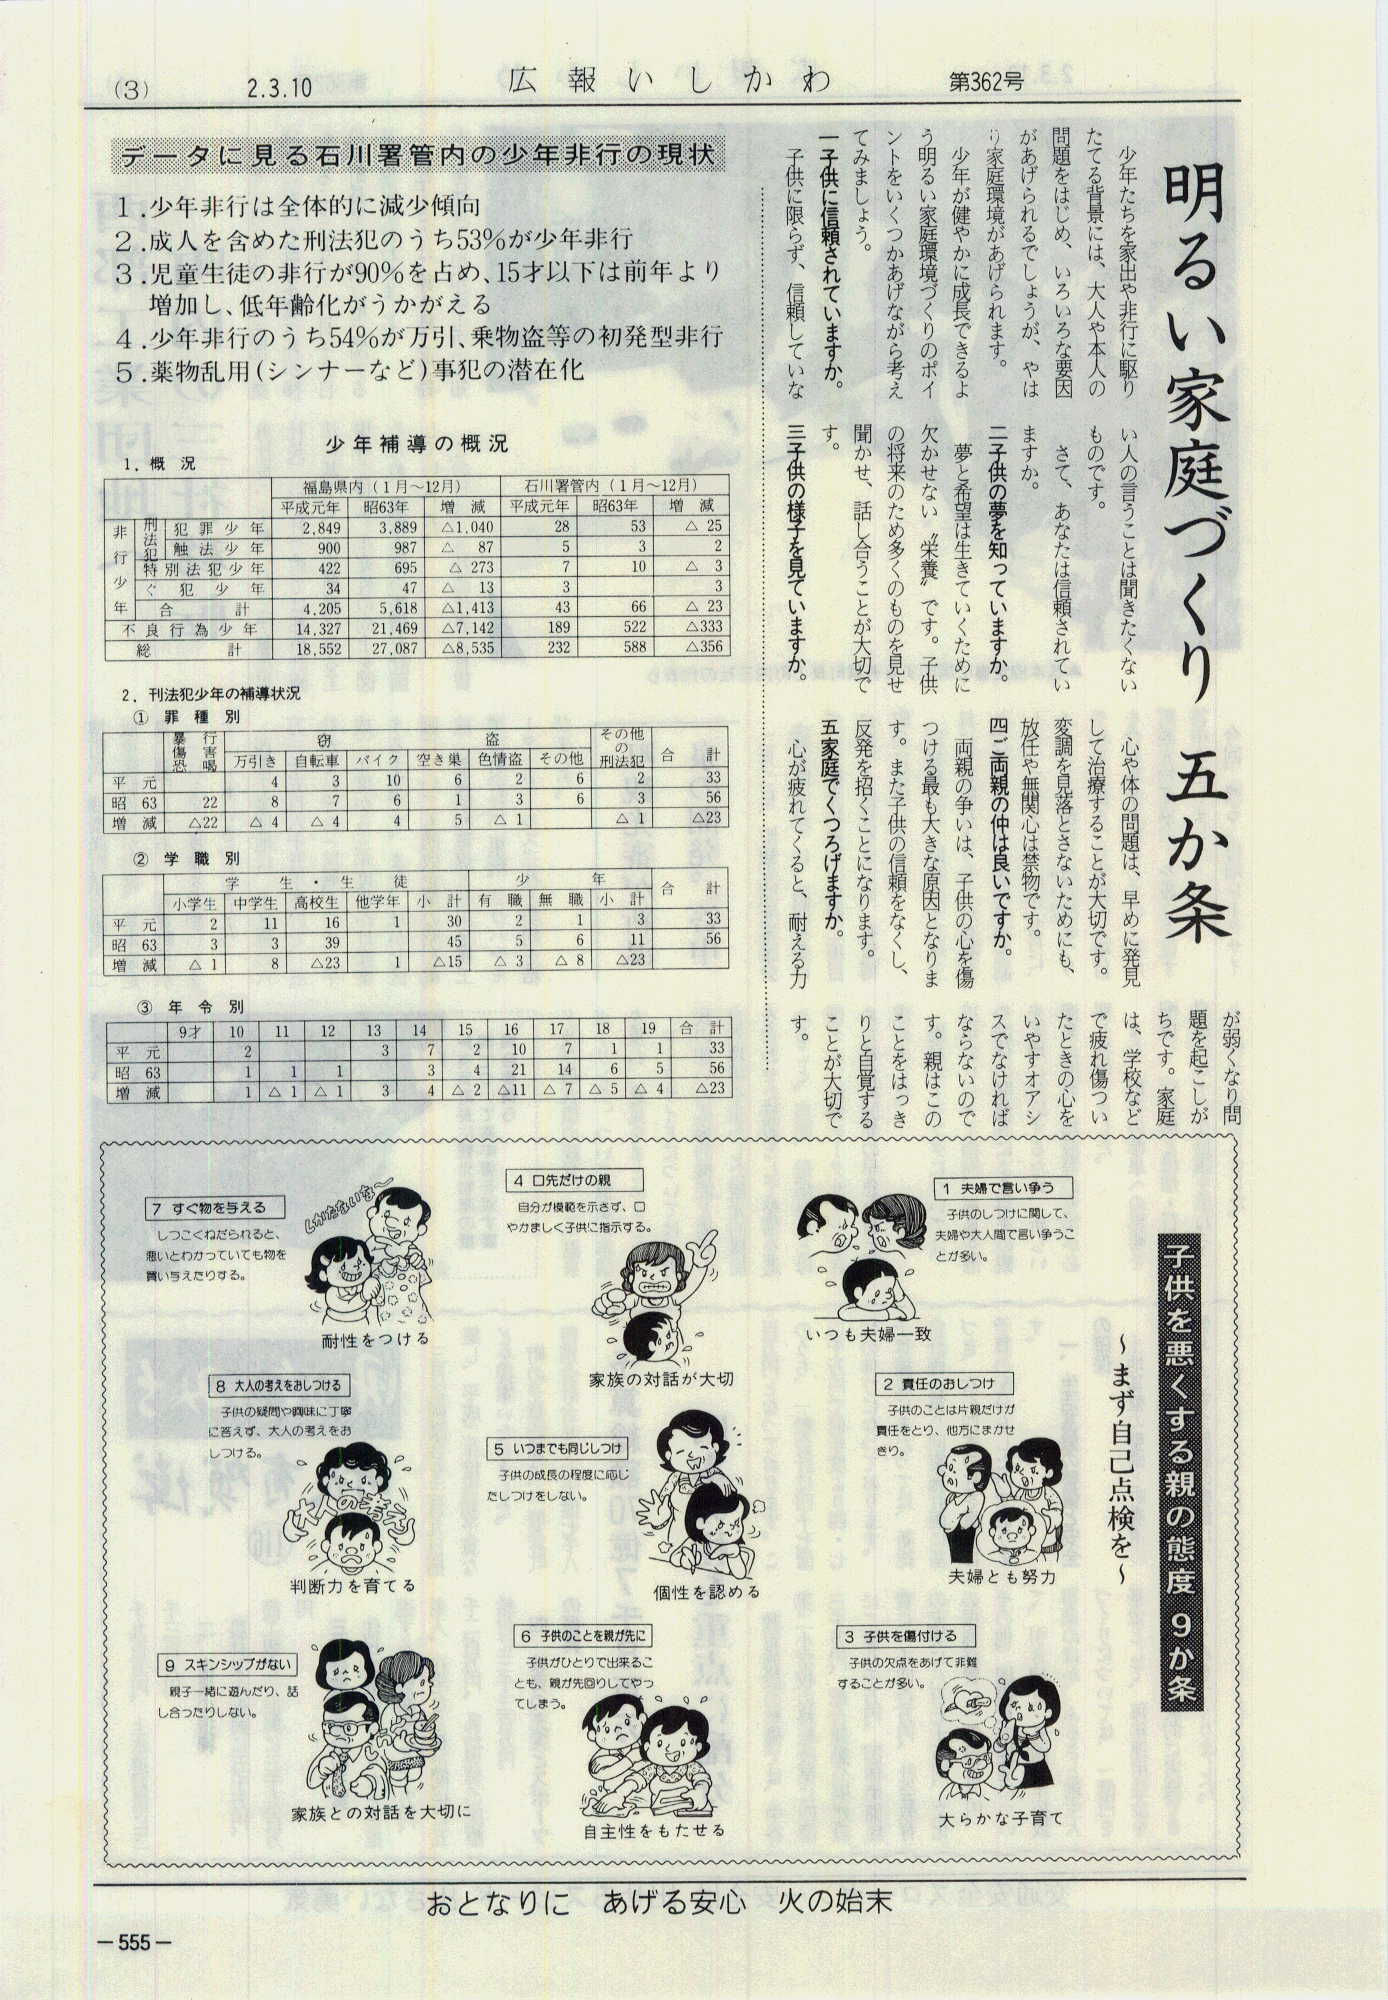 (3)　2.3.10　広報いしかわ　第362号
明るい家庭づくり 五か条
少年たちを家出や非行に駆り
たてる背景には、大人や本人の
問題をはじめ、いろいろな要因
があげられるでしょうが、やは
り家庭環境があげられます。
少年が健やかに成長できるよ
う明るい家庭環境づくりのポイ
ントをいくつかあげながら考え
てみましょう。
一子供に信頼されていますか。
子供に限らず、信頼していな
い人の言うことは聞きたくない
ものです。
さて、あなたは信頼されてい
ますか。
二子供の夢を知っていますか。
夢と希望は生きていくために
欠かせない〝栄養〟です。子供
の将来のため多くのものを見せ
聞かせ、話し合うことが大切で
す。
三子供の様子を見ていますか。
心や体の問題は、早めに発見
して治療することが大切です。
変調を見落とさないためにも、
放任や無関心は禁物です。
四ご両親の仲は良いですか。
両親の争いは、子供の心を傷
つける最も大きな原因となりま
す。また子供の信頼をなくし、
反発を招くことになります。
五家庭でくつろげますか。
心が疲れてくると、耐える力
が弱くなり問
題を起こしが
ちです。家庭
は、学校など
で疲れ傷つい
たときの心を
いやすオアシ
スでなければ
ならないので
す。親はこの
ことをはっき
りと自覚する
ことが大切で
す。
データに見る石川署管内の少年非行の現状
1.少年非行は全体的に減少傾向
2.成人を含めた刑法犯のうち53%が少年非行
3.児童生徒の非行が90%を占め、15才以下は前年より
増加し、低年齢化がうかがえる
4.少年非行のうち54%が万引、乗物盗等の初発型非行
5.薬物乱用(シンナーなど)事犯の潜在化
少年補導の概況
1. 概況
福島県内(1月～12月)　石川署管内(1月～12月)
平成元年　昭63年　増減　平成元年　昭63年　増減
非行少年　刑法犯　犯罪少年　2,849　3,889　△1,040　28　53　△25
触法少年　900　987　△87　5　3　2
特別法犯少年　422　695　△273　7　10　△3
ぐ犯少年　34　47　△13　3　　3
合計　4,205　5,618　△1,413　43　66　△23
不良行為少年　14,327　21,469　△7,142　189　522　△333
総計　18,552　27,087　△8,535　232　588　△356
2. 刑法犯少年の補導状況
① 罪種別
暴行傷害恐喝　窃盗　その他の刑法犯　合計
万引き　自転車　バイク　空き巣　色情盗　その他
平元　　4　3　10　6　2　6　2　33
昭63　22　8　7　6　1　3　6　3　56
増減　△22　△4　△4　4　5　△1　　△1　△23
② 学職別
学生・生徒　少年　合計
小学生　中学生　高校生　他学年　小計　有職　無職　小計
平元　2　11　16　1　30　2　1　3　33
昭63　3　3　39　　45　5　6　11　56
増減　△1　8　△23　1　△15　△3　△8　△23
③ 年令別
9才　10　11　12　13　14　15　16　17　18　19　合計
平元　　2　　　3　7　2　10　7　1　1　33
昭63　　1　1　1　　3　4　21　14　6　5　56
増減　　1　△1　△1　3　4　△2　△11　△7　△5　△4　△23
子供を悪くする親の態度 9か条
～まず自己点検を～
1 夫婦で言い争う
子供のしつけに関して、
夫婦や大人間で言い争うこ
とが多い。
いつも夫婦一致
2 責任のおしつけ
子供のことは片親だけが
責任をとり、他方にまかせ
きり。
夫婦とも努力
3 子供を傷付ける
子供の欠点をあげて非難
することが多い。
大らかな子育て
4 口先だけの親
自分が模範を示さず、口
やかましく子供に指示する。
家族の対話が大切
5 いつまでも同じしつけ
子供の成長の程度に応じ
たしつけをしない。
個性を認める
6 子供のことを親が先に
子供がひとりで出来るこ
とも、親が先回りしてやっ
てしまう。
自主性をもたせる
7 すぐ物を与える
しつこくねだられると、
悪いとわかっていても物を
買い与えたりする。
しかたないな～
耐性をつける
8 大人の考えをおしつける
子供の疑問や興味に丁寧
に答えず、大人の考えをお
しつける。
大人の考え
判断力を育てる
9 スキンシップがない
親子一緒に遊んだり、話
し合ったりしない。
家族との対話を大切に
おとなりに　あげる安心　火の始末
－555－